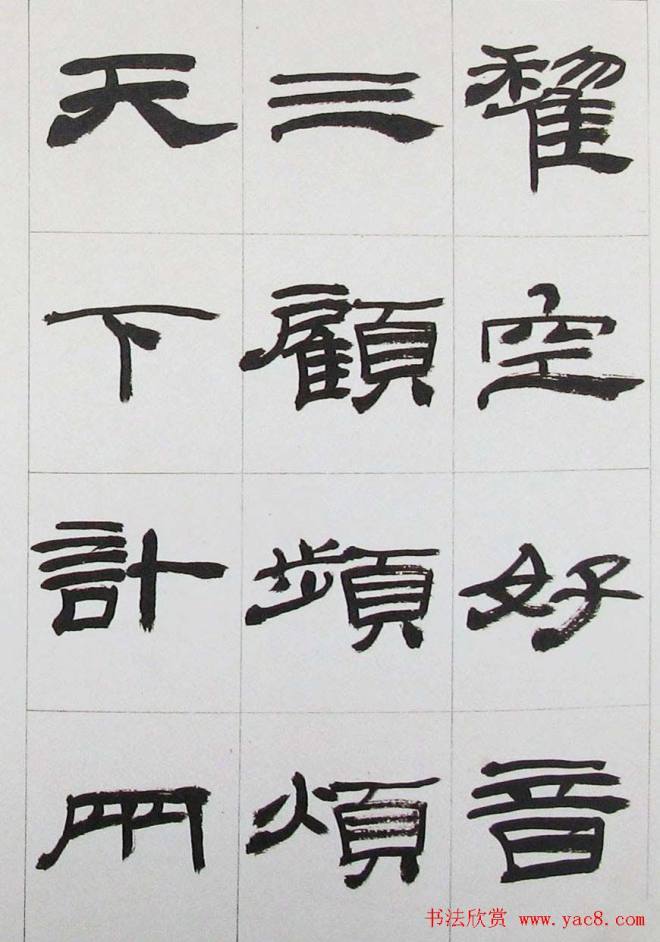 空好音
三顧頻煩
天下計兩
书法欣赏 www.yac8.com